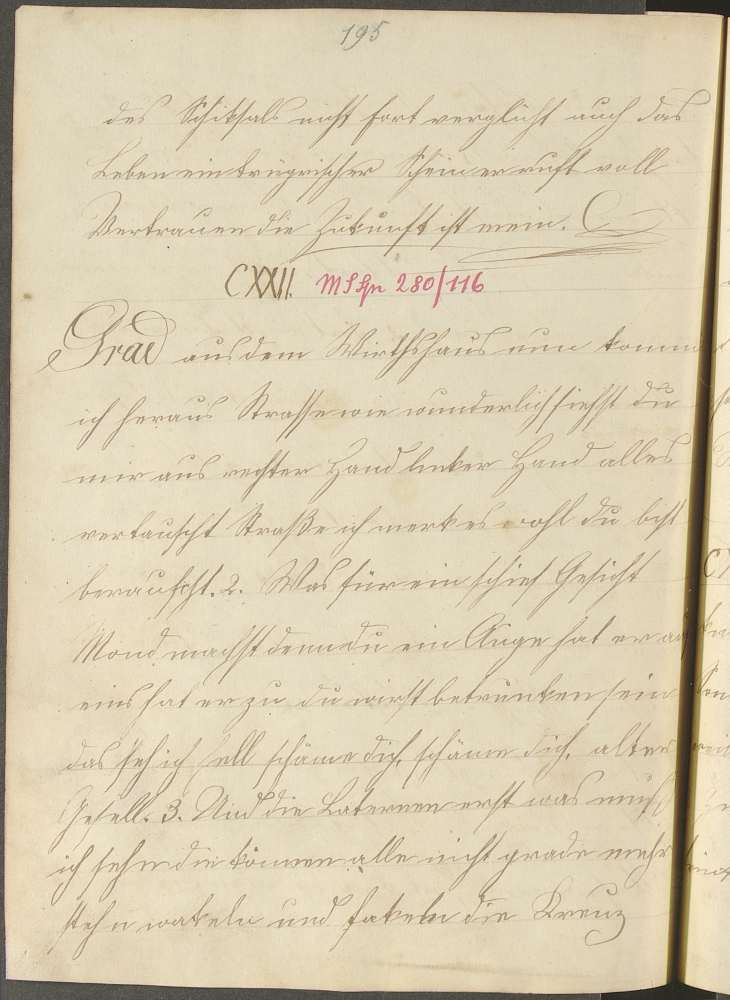 195
des Schiksals nicht fort verglicht auch das
Leben ein trügrischer Schein er ruft voll
Vertrauen die Zukunft ist mein.
CXXII. MSHn 280/116
Grad aus dem Wirthshaus nun komm
ich heraus Strasse wie wunderlich siehst du
mir aus rechter Hand linker Hand alles
vertauscht Straße ich merk es wohl du bist
berauscht. 2. Was für ein schief Gesicht
Mond machst denn du ein Auge hat er au
eins hat er zu du wirst betrunken sein
das seh ich hell schäme dich, schäme dich, alter
Gesell. 3. Und die Laternen erst was muß
ich sehn die können alle nicht grade mehr
stehn wakeln und fakeln die Kreuz